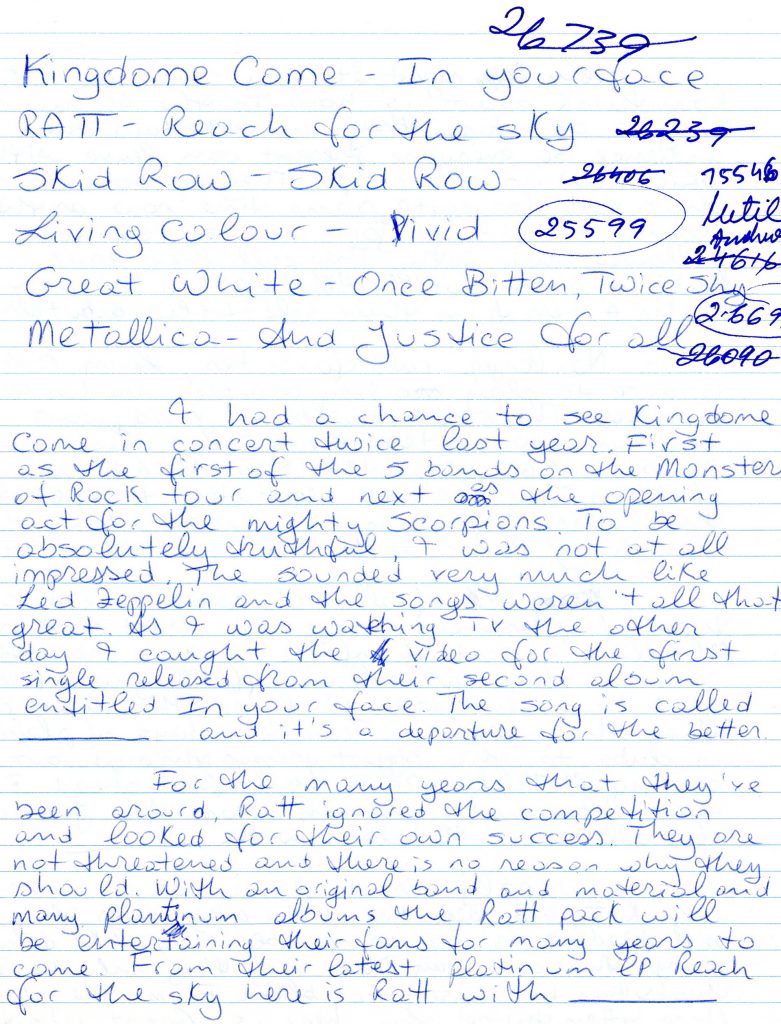 26739
Kingdome Come - In your face
RATT - Reach for the sky 26239
Skid Row - Skid Row 26406 15546
Living Colour - Vivid 25599
24616
Great White - Once Bitten, Twice Shy
Metallica - And Justice for all
26090
I had a chance to see Kingdome
Come in concert twice last year. First
as the first of the 5 bands on the Monster
of Rock tour and next as the opening
act for the mighty Scorpions. To be
absolutely truthful, I was not at all
impressed. The sounded very much like
Led Zeppelin and the songs weren't all that
great. As I was watching TV the other
day I caught the video for the first
single released from their second album
entitled In your face. The song is called
________ and it's a departure for the better.
For the many years that they've
been around, Ratt ignored the competition
and looked for their own success. They are
not threatened and there is no reason why they
should. With an original band and material and
many plantinum albums the Ratt pack will
be entertaining their fans for many years to
come. From their latest platinum LP Reach
for the sky here is Ratt with ________